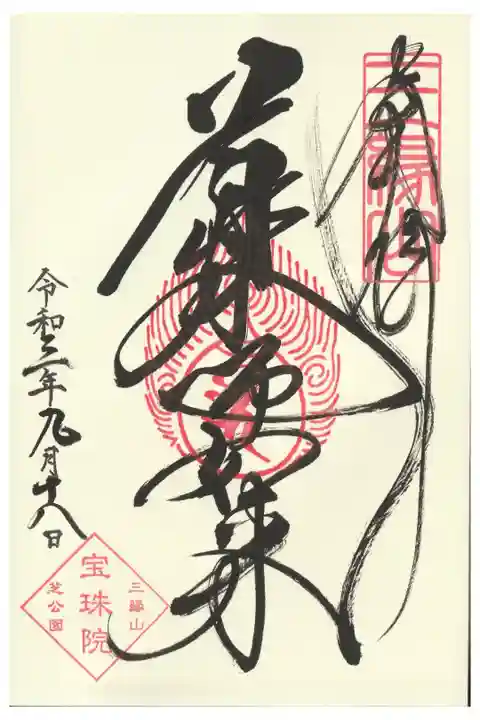 奉拝
三縁山
如来
令和二年九月十八日
三縁山
宝珠院
芝公園